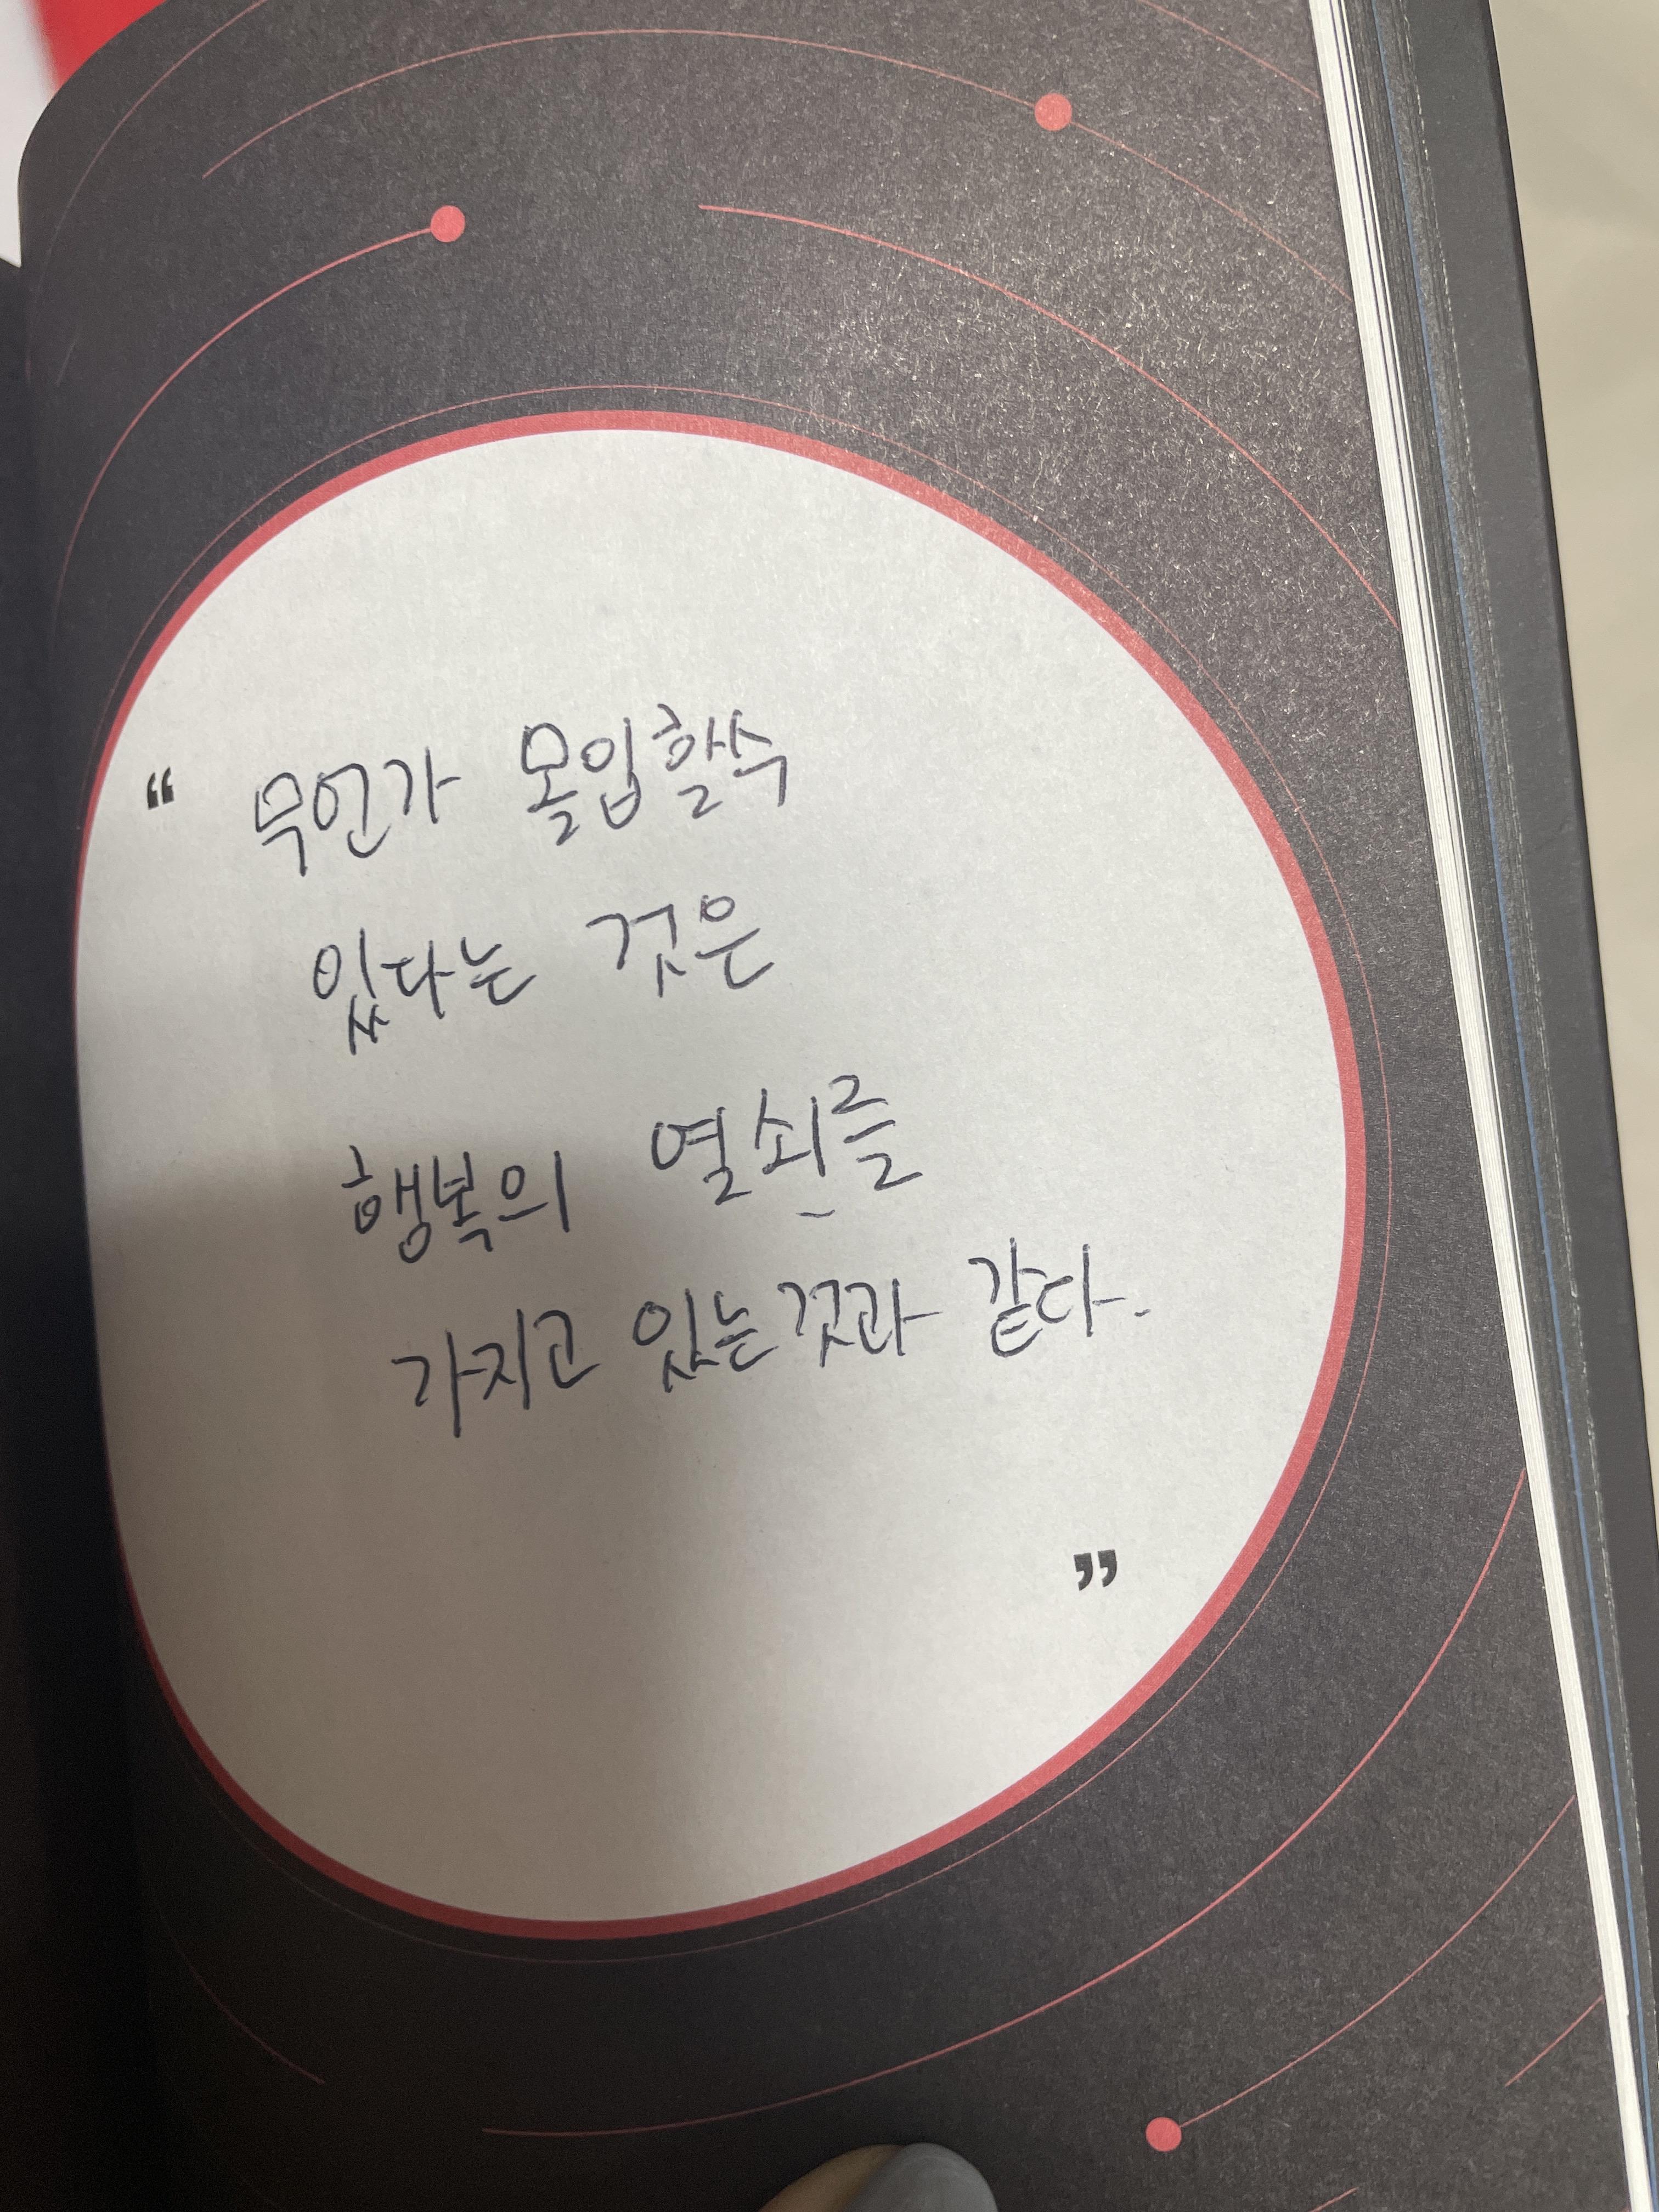 “ 무언가 몰입할수
있다는 것은
행복의 열쇠를
가지고 있는것과 같다.
”